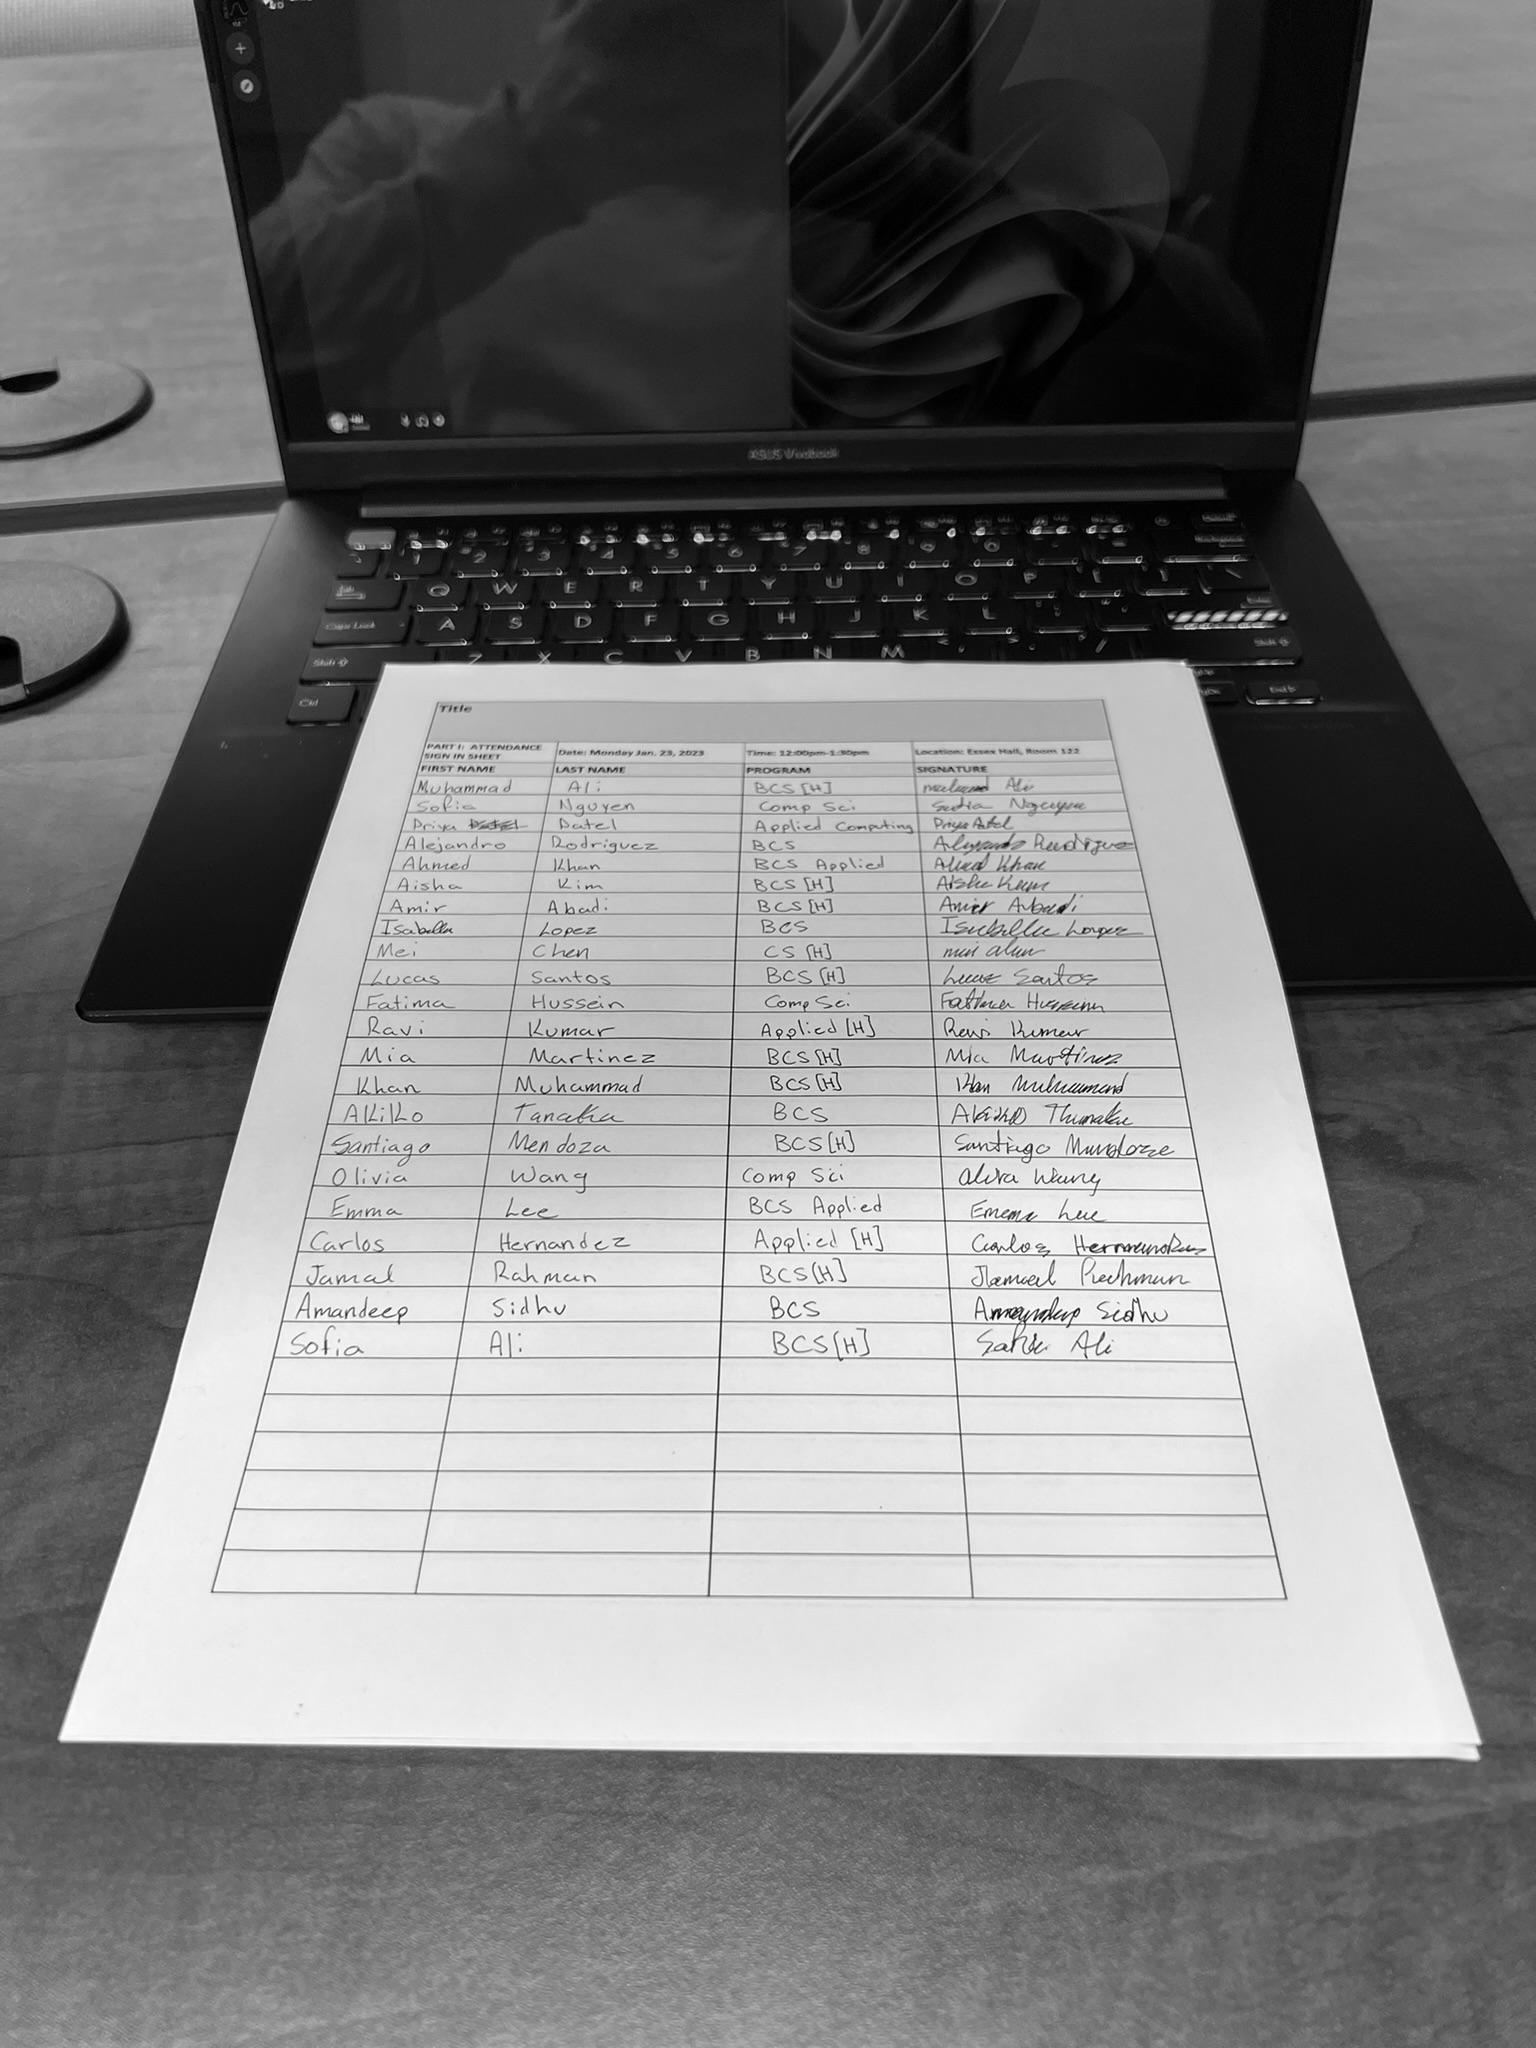 ASUS Vivobook
1 2 3 4 5 6 7 8 9 0
Q W E R T Y U I O P
Caps Lock A S D F G H J K L
Shift Z X C V B N M Shift
Ctrl End
Title
PART I: ATTENDANCE SIGN IN SHEET Date: Monday Jan. 23, 2023 Time: 12:00pm-1:30pm Location: Essex Hall, Room 122
FIRST NAME LAST NAME PROGRAM SIGNATURE
Muhammad Ali BCS [H] Ali
Sofia Nguyen Comp Sci Sofia Nguyen
Priya Patel Applied Computing Priya Patel
Alejandro Rodriguez BCS Alejandro Rodriguez
Ahmed Khan BCS Applied Ahmed Khan
Aisha Kim BCS [H] Aisha Kim
Amir Abadi BCS [H] Amir Abadi
Isabella Lopez BCS Isabella Lopez
Mei Chen CS [H] mei chen
Lucas Santos BCS [H] Lucas Santos
Fatima Hussein Comp Sci Fatima Hussein
Ravi Kumar Applied [H] Ravi Kumar
Mia Martinez BCS [H] Mia Martinez
Khan Muhammad BCS [H] Khan Muhammad
Akiko Tanaka BCS Akiko Tanaka
Santiago Mendoza BCS [H] Santiago Mendoza
Olivia Wang Comp Sci Olivia Wang
Emma Lee BCS Applied Emma Lee
Carlos Hernandez Applied [H] Carlos Hernandez
Jamal Rahman BCS [H] Jamal Rahman
Amandeep Sidhu BCS Amandeep Sidhu
Sofia Ali BCS [H] Sofia Ali